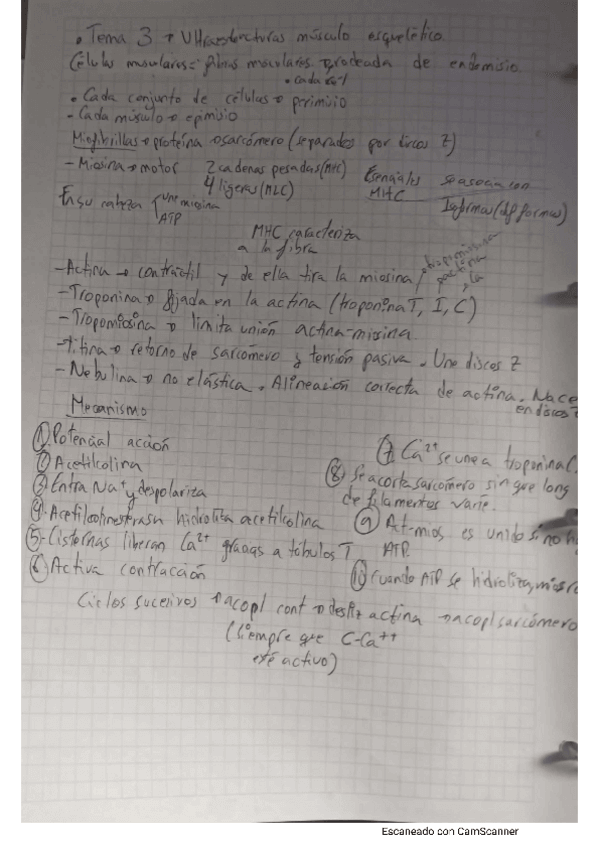 • Tema 3 → Ultraestructuras músculo esquelético.
Células musculares = fibras musculares → rodeada de endomisio.
• Cada
• Cada conjunto de células → perimisio
- Cada músculo → epimisio
Miofibrillas → proteína → sarcómero (separados por discos Z)
- Miosina → motor 2 cadenas pesadas (MHC)
4 ligeras (MLC)
Esenciales se asocia con
MHC Isoformas (dif formas)
En su cabeza une miosina
ATP
MHC caracteriza
a la fibra
- Actina → contráctil y de ella tira la miosina / tropomiosina
actina
Ca
- Troponina → fijada en la actina (troponina T, I, C)
- Tropomiosina → limita unión actina-miosina.
- Titina → retorno de sarcómero y tensión pasiva. Une discos Z
- Nebulina → no elástica. Alineación correcta de actina. Nace
en discos Z
Mecanismo
① Potencial acción
② Acetilcolina
③ Entra Na⁺ y despolariza
④ Acetilcolinesterasa hidroliza acetilcolina
⑤ - Cisternas liberan Ca²⁺ gracias a túbulos T
⑥ Activa contracción
⑦ Ca²⁺ se une a troponina C.
⑧ Se acorta sarcómero sin que long
de filamentos varíe.
⑨ At-mios es unido si no h
ATP.
⑩ Cuando ATP se hidroliza, mios
Ciclos sucesivos → acopl cont → desliz actina → acopl sarcómero
(siempre que C-Ca⁺⁺
esté activo)
Escaneado con CamScanner